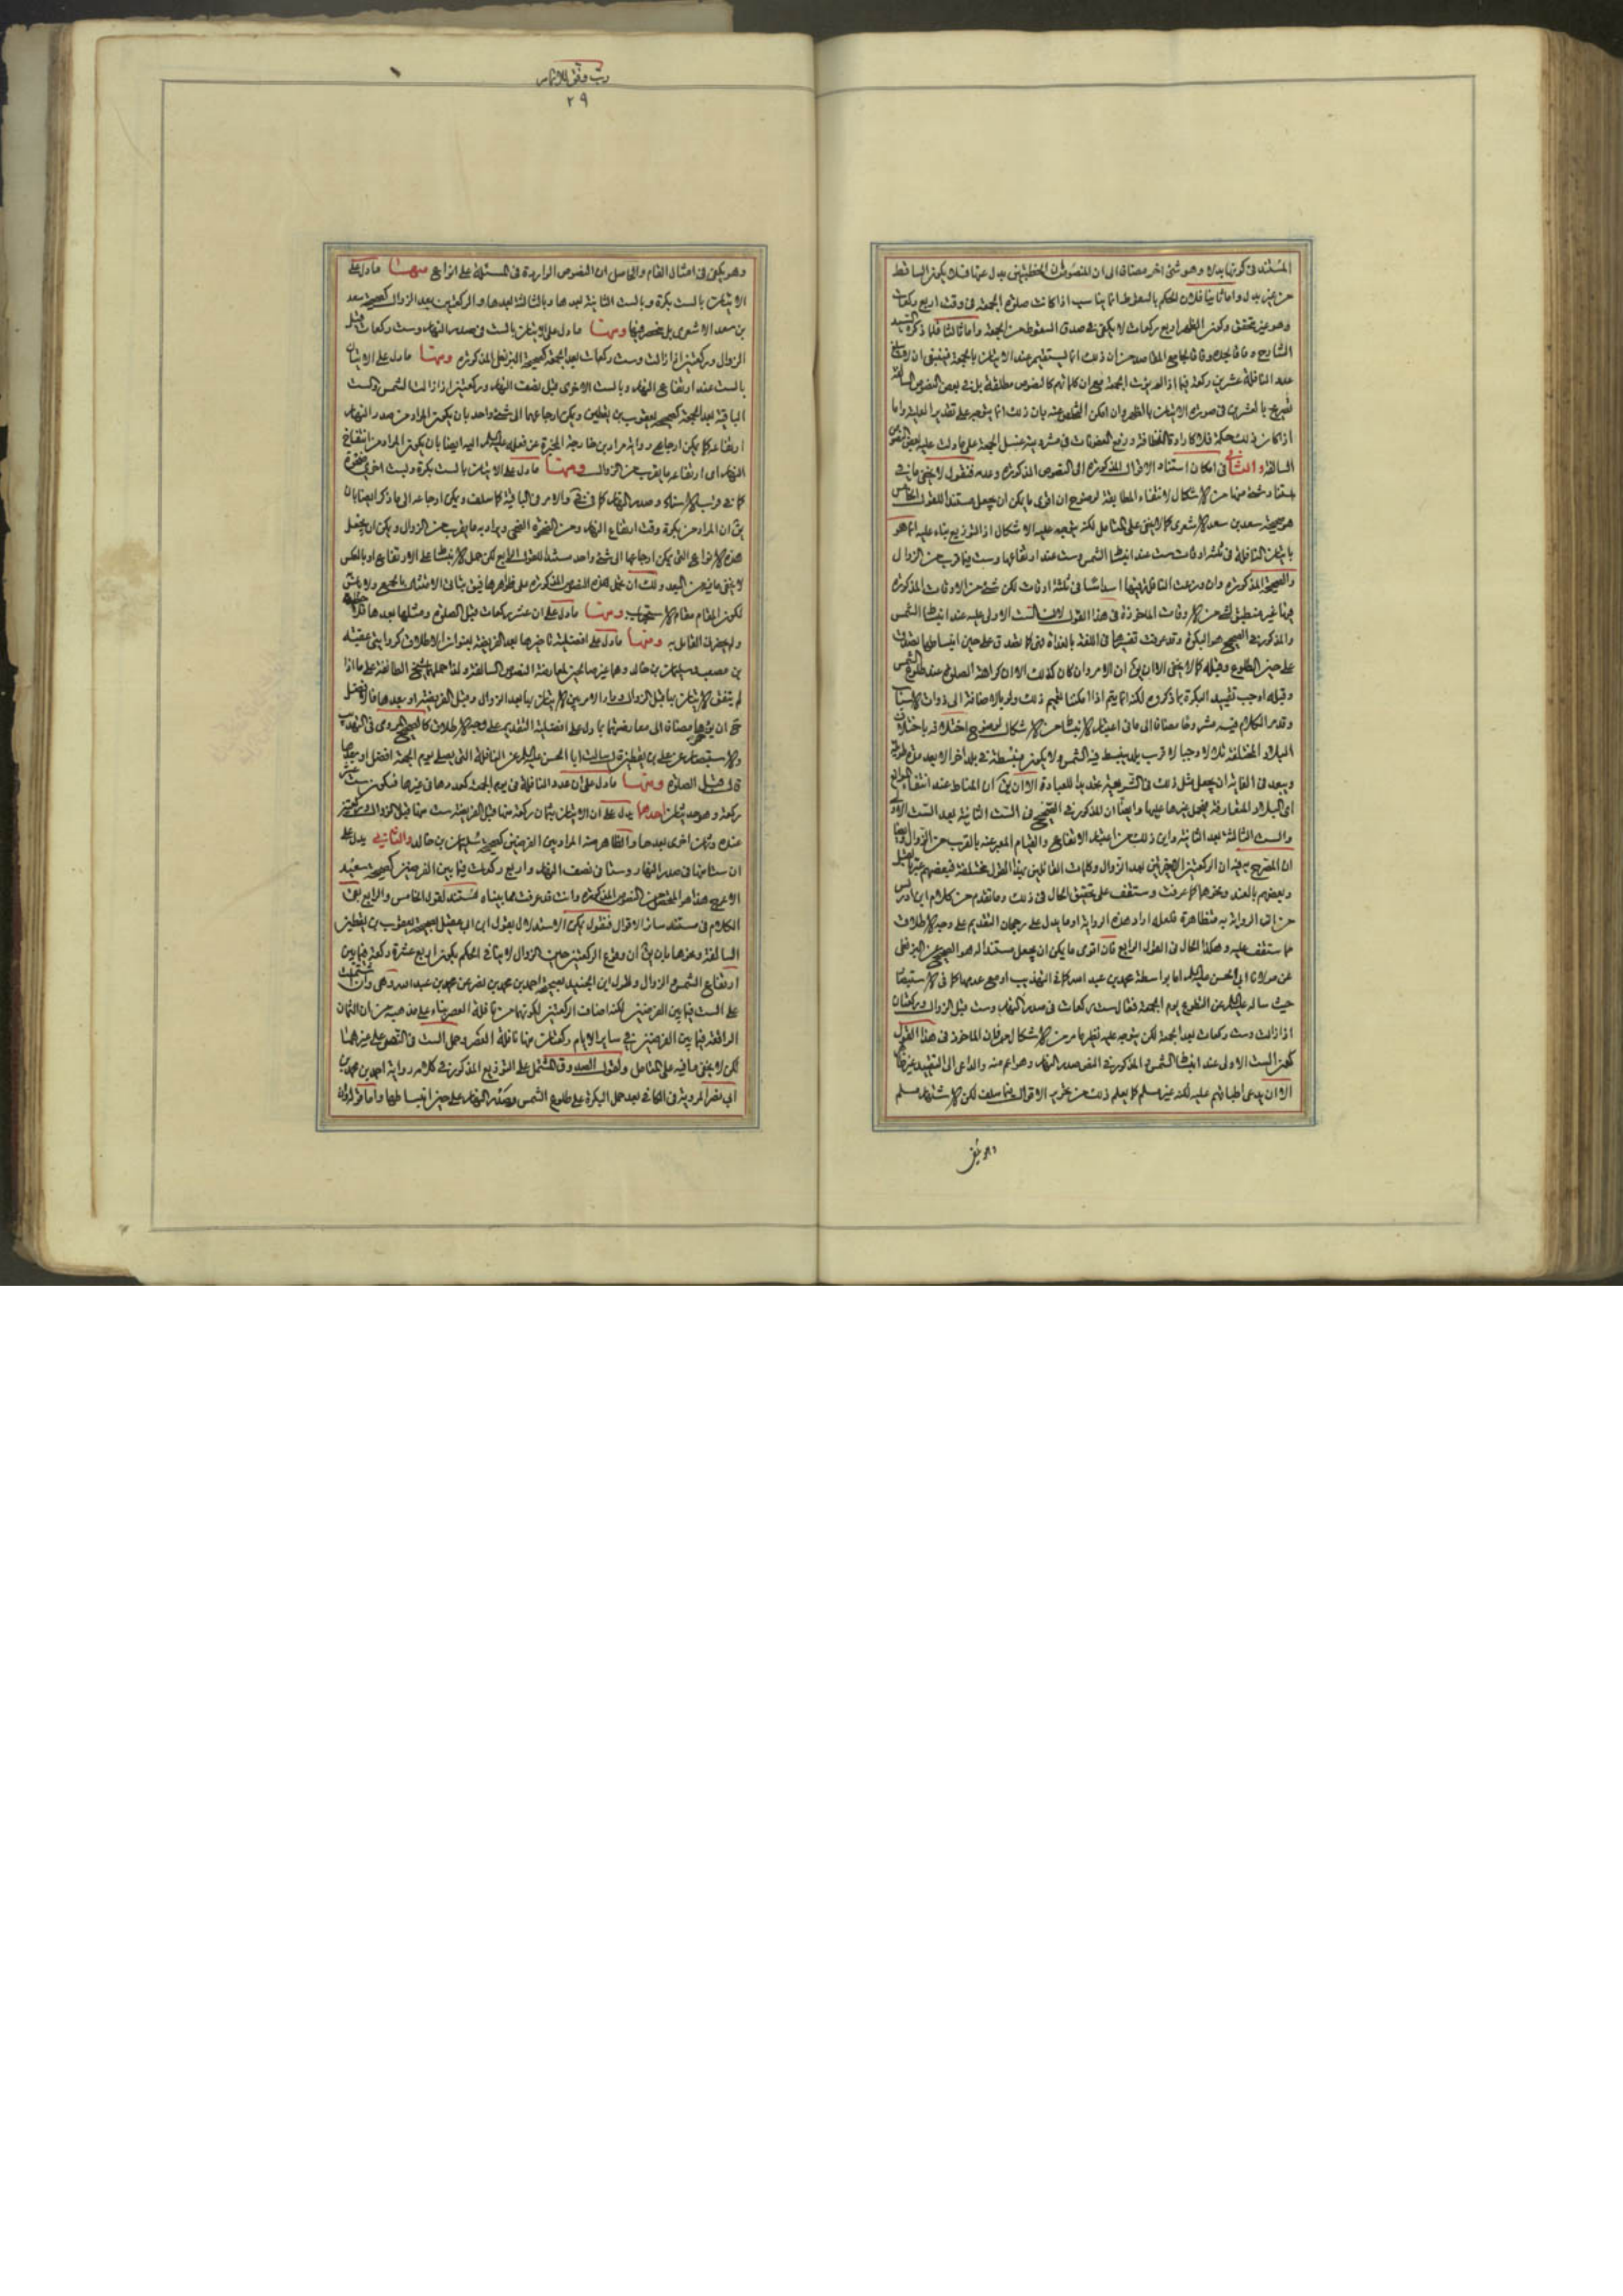 المستند في كونها بدلا وهو شيء اخر مضافا الى ان المنصوص ان الخطبتين بدل عنها فلا يكون الساقط
من غير بدل واما ثانيا فلان الحكم بالسقوط انما يناسب اذا كانت صلوة الجمعة في وقت اربع ركعات
وهو غير متحقق وكون الظهر اربع ركعات لا يكفي في صدق السقوط من الجمعة واما ثالثا فلما ذكره السيد
الشارح وفاقا لجده وفاقا لجامع المقاصد من ان ذلك انما يستقيم عند الاتيان بالجمعة فينبغي ان لا
عدد النافلة عشرين ركعة فيما اذا لم يؤت الجمعة مع ان كلماتهم كالنصوص مطلقة بل في بعض النصوص السالفة
تصريح بالعشرين في صورة الاتيان بالظهر وان امكن التفصي عنه بان ذلك انما يتوجه على تقدير العلية واما
اذا كان ذلك حكمة فلا كارادة النظافة ورفع العفونات في مشروعية غسل الجمعة على ما دلت عليه بعض النصوص
السالفة والثاني في امكان استناد الاقوال المذكورة الى النصوص المذكورة وعدمه فنقول لا يخفى ما في
استناد شيء منها من الاشكال لانتفاء المطابقة لوضوح ان اقوى ما يمكن ان يجعل مستندا للقول الخامس
هو صحيحة سعد بن سعد الاشعري كما لا يخفى على المتامل لكنه يتوجه عليه الاشكال اذ التوزيع بناء عليه انما هو
باتيان النافلة في ثلثة اوقات ست عند انبساط الشمس وست عند ارتفاعها وست فيما قرب من الزوال
والصحيحة المذكورة وان وزعت النافلة فيها اسداسا في ثلثة اوقات لكن شيء من الاوقات المذكورة
فيها غير منطبق لشيء من الاوقات الماخوذة في هذا القول لان الست الاولى عليه عند انبساط الشمس
والمذكور في الصحيح هو البكرة وقد عرفت تفسيرها في اللغة بالغداة فهي كما تصدق على حين انبساطها تصدق
على حين الطلوع وقبله كما لا يخفى الا ان يق ان الامر وان كان كذلك الا ان كراهة الصلوة عند طلوع الشمس
وقبله اوجب تقييد البكرة بما ذكروه لكنه انما يتم اذا امكننا تعميم ذلك ولو بالاضافة الى ذوات الاسباب
وقد مر الكلام فيه مشروحا مضافا الى ما في اعتبار الانبساط من الاشكال لوضوح اختلافه باختلاف
البلاد المختلفة تلالا وجبالا فرب بلد ينبسط فيه الشمس ولا يكون منبسطة في بلد اخر الا بعد مدة طويلة
ويبعد في الغاية ان يجعل مثل ذلك في الشريعة تحديدا للعبادة الا ان يق ان المناط عند انتفاء الموانع
اي البلاد المتعارفة فيحمل غيرها عليها وايضا ان المذكور في الصحيح في الست الثانية بعد الست الاولى
والست الثالثة بعد الثانية واين ذلك من اعتبار الارتفاع والقيام المعبر عنه بالقرب من الزوال وايضا
ان المصرح به فيه ان الركعتين الاخيرتين بعد الزوال وكلمات القائلين بهذا القول مختلفة فبعضهم عبر بالقبل
وبعضهم بالعند ونحوها كما عرفت وستقف على تحقيق الحال في ذلك وما تقدم من كلام ابن ادريس
من ان الرواية به متظاهرة فلعله اراد هذه الرواية او ما يدل على رجحان التقديم على وجه الاطلاق
مما ستقف عليه وهكذا الحال في القول الرابع فان اقوى ما يمكن ان يجعل مستندا له هو الصحيح عن البزنطي
عن مولانا ابي الحسن عليه السلام اما بواسطة محمد بن عبد الله كما في التهذيب او مع عدمها كما في الاستبصار
حيث ساله عليه السلام عن التطوع يوم الجمعة فقال ست ركعات في صدر النهار وست قبل الزوال وركعتان
اذا زالت وست ركعات بعد الجمعة لكن يتوجه عليه نظير ما مر من الاشكال اما اولا فلان الماخوذ في هذا القول
كون الست الاولى عند انبساط الشمس والمذكور في النص صدر النهار وهو اعم منه والداعي الى التقييد غير ظاهر
الا ان يدعى اطباقهم عليه لكنه غير مسلم كما يعلم ذلك من تحرير الاقوال فيما سلف لكن الاشتهار مسلم
وهو يكفي
وقف
٢٩
وهو يكفي في امثال المقام والحاصل ان النصوص الواردة في المسئلة على انواع منها ما دل على
الاتيان بالست بكرة وبالست الثانية بعدها وبالثالثة بعدها والركعتين بعد الزوال كصحيحة سعد
بن سعد الاشعري بل ينحصر فيها ومنها ما دل على الاتيان بالست في صدر النهار وست ركعات قبل
الزوال وركعتين اذا زالت وست ركعات بعد الجمعة كصحيحة البزنطي المذكورة ومنها ما دل على الاتيان
بالست عند ارتفاع النهار وبالست الاخرى قبل نصف النهار وركعتين اذا زالت الشمس والست
الباقية بعد الجمعة كصحيحة يعقوب بن يقطين ويمكن ارجاعهما الى شيء واحد بان يكون المراد من صدر النهار
ارتفاعه كما يمكن ارجاع رواية مراد بن خارجة المخبرة عن فعله عليه السلام اليه ايضا بان يكون المراد من انتفاخ
النهار اي ارتفاعه ما يقرب من الزوال ومنها ما دل على الاتيان بالست بكرة وبست اخرى ضحوة
كما في قرب الاسناد وصدر النهار كما في والامر في الباقية كما سلف ويمكن ارجاعه الى ما ذكر ايضا بان
يق ان المراد من بكرة وقت ارتفاع النهار ومن الضحوة الضحى ويراد به ما يقرب من الزوال ويمكن ان يجعل
هذه الانواع التي يمكن ارجاعها الى شيء واحد مستندا للقول الرابع لكن حمل الانبساط على الارتفاع او بالعكس
لا يخفى ما فيه من البعد ولك ان تحمل هذه النصوص المذكورة على ظواهرها فيق بتاتي الامتثال بالجميع ولا باس
لكون المقام مقام الاستحباب ومنها ما دل على ان عشر ركعات قبل الصلوة ومثلها بعدها
ولم يحضرني القائل به ومنها ما دل على افضلية تاخيرها بعد الفريضة بعنوان الاطلاق كروايتي عقبة
بن مصعب وسليمان بن خالد وهما غير صالحين لمعارضة النصوص السالفة ولذا حملهما شيخ الطائفة على ما اذا
لم يتفق الاتيان بها قبل الزوال ودار الامر بين الاتيان بها بعد الزوال وقبل الفريضة او بعدها فالافضل
ح ان يؤخرها مضافا الى معارضتها بما دل على افضلية التقديم على وجه الاطلاق كالصحيح المروي في التهذيب
والاستبصار عن علي بن يقطين قال سالت ابا الحسن عليه السلام عن النافلة التي تصلى يوم الجمعة افضل او بعدها
قال قبل الصلوة ومنها ما دل على ان عدد النافلة في يوم الجمعة كعددها في غيرها فيكون ست عشر
ركعة وهو حديثان احدهما يدل على ان الاتيان بثمان ركعة منها قبل الفريضة ست منها قبل الزوال وركعتين
عنده وثمان اخرى بعدها والظاهر منه المراد بين الفرضين كصحيحة سليمان بن خالد والثاني يدل على
ان ستا منها في صدر النهار وستا في نصف النهار واربع ركعات فيما بين الفرضين كصحيحة سعيد
الاعرج هذا هو المتحصل من النصوص المذكورة وانت قد عرفت مما بيناه مستند القول الخامس والرابع بقي
الكلام في مستند سائر الاقوال فنقول يمكن الاستدلال لقول ابن ابي عقيل بصحيحة يعقوب بن يقطين
السالفة ونحوها بان يق ان وقوع الركعتين حين الزوال لا ينافي الحكم بكون اربع عشرة ركعة فيما بين
ارتفاع الشمس والزوال ولقول ابن الجنيد بصحيحة احمد بن محمد بن ابي نصر عن محمد بن عبد الله وهي وان اشتملت
على الست فيما بين الفرضين لكنه اضاف الركعتين لكونهما من نافلة العصر بناء على مذهبه من ان الثمان
الواقعة فيما بين الفرضين في ساير الايام ركعتان منها نافلة العصر وحمل الست في النصوص على غيرهما
لكن لا يخفى ما فيه على المتامل ولقول الصدوق المشتمل على التوزيع المذكور في كلامه رواية احمد بن محمد بن
ابي نصر المروية في الكافي بعد حمل البكرة على طلوع الشمس وصدر النهار على حين انبساطها واما